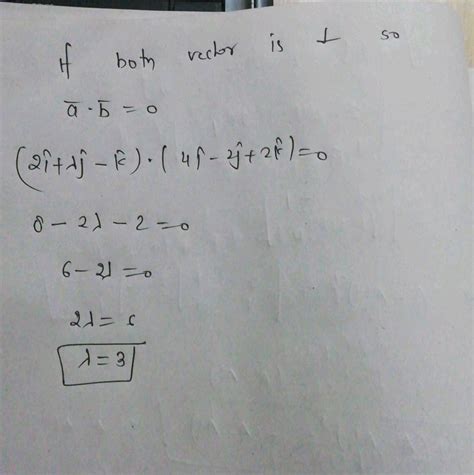 If both vector is ⊥ so
a̅ · b̅ = 0
(2î + λĵ − k̂) · (4î − 2ĵ + 2k̂) = 0
8 − 2λ − 2 = 0
6 − 2λ = 0
2λ = 6
λ = 3